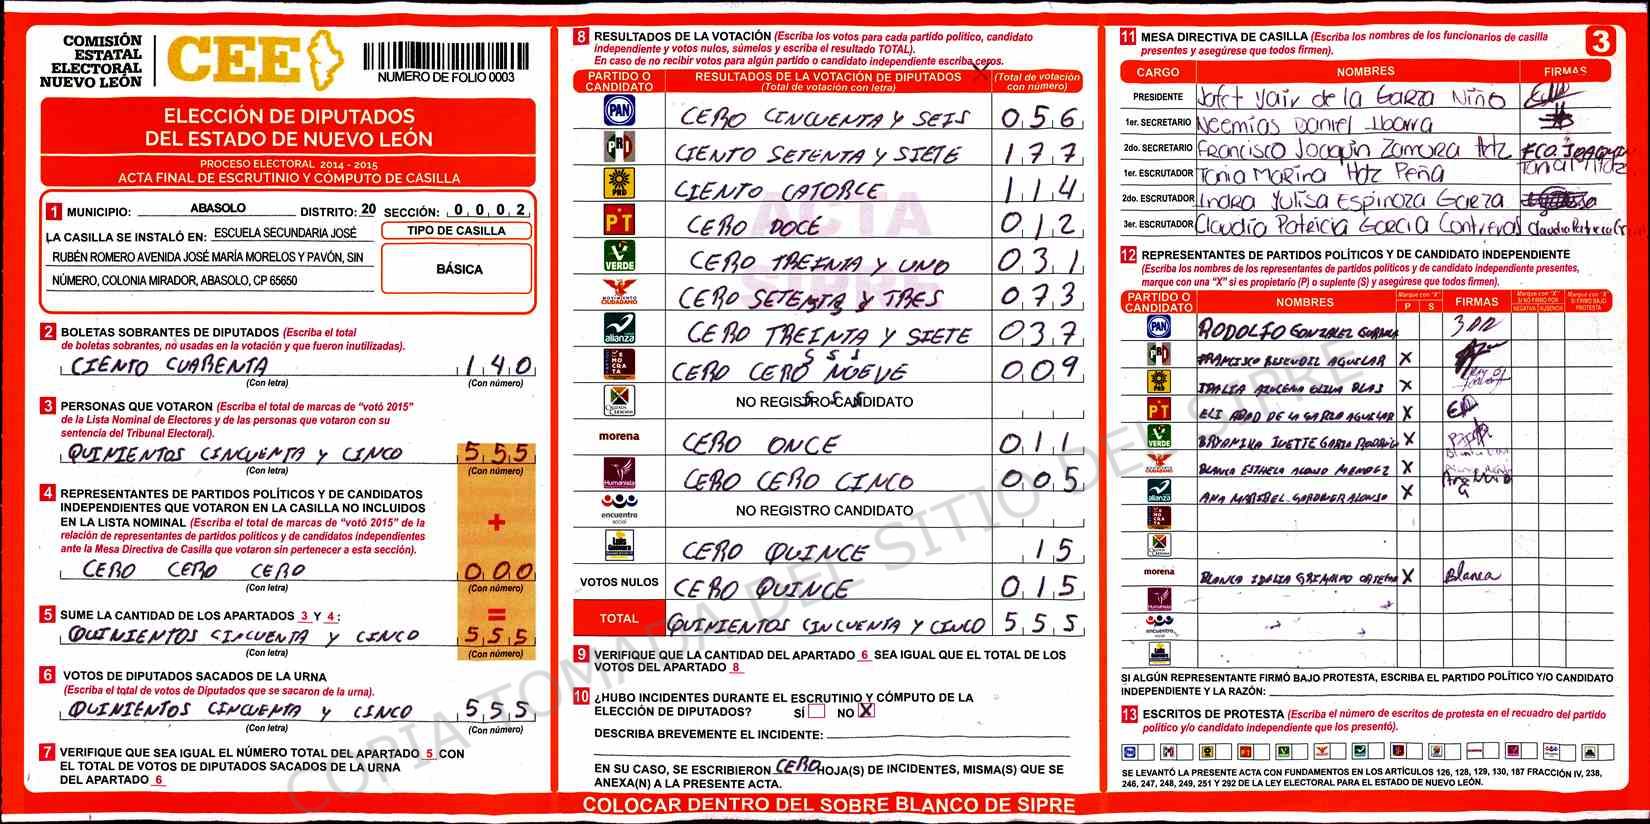 COMISIÓN
ESTATAL
ELECTORAL
NUEVO LEÓN
CEE
NUMERO DE FOLIO 0003
ELECCIÓN DE DIPUTADOS
DEL ESTADO DE NUEVO LEÓN
PROCESO ELECTORAL 2014 - 2015
ACTA FINAL DE ESCRUTINIO Y CÓMPUTO DE CASILLA
1 MUNICIPIO: ABASOLO DISTRITO: 20 SECCIÓN: 0 0 0 2
LA CASILLA SE INSTALÓ EN: ESCUELA SECUNDARIA JOSÉ
RUBÉN ROMERO AVENIDA JOSÉ MARÍA MORELOS Y PAVÓN, SIN
NÚMERO, COLONIA MIRADOR, ABASOLO, CP 65650
TIPO DE CASILLA
BÁSICA
2 BOLETAS SOBRANTES DE DIPUTADOS (Escriba el total
de boletas sobrantes, no usadas en la votación y que fueron inutilizadas).
CIENTO CUARENTA 1 4 0
(Con letra) (Con número)
3 PERSONAS QUE VOTARON (Escriba el total de marcas de "votó 2015"
de la Lista Nominal de Electores y de las personas que votaron con su
sentencia del Tribunal Electoral).
QUINIENTOS CINCUENTA Y CINCO 5 5 5
(Con letra) (Con número)
4 REPRESENTANTES DE PARTIDOS POLÍTICOS Y DE CANDIDATOS
INDEPENDIENTES QUE VOTARON EN LA CASILLA NO INCLUIDOS
EN LA LISTA NOMINAL (Escriba el total de marcas de "votó 2015" de la
relación de representantes de partidos políticos y de candidatos independientes
ante la Mesa Directiva de Casilla que votaron sin pertenecer a esta sección).
+
CERO CERO CERO 0 0 0
(Con letra) (Con número)
=
5 SUME LA CANTIDAD DE LOS APARTADOS 3 Y 4:
QUINIENTOS CINCUENTA Y CINCO 5 5 5
(Con letra) (Con número)
6 VOTOS DE DIPUTADOS SACADOS DE LA URNA
(Escriba el total de votos de Diputados que se sacaron de la urna).
QUINIENTOS CINCUENTA Y CINCO 5 5 5
(Con letra) (Con número)
7 VERIFIQUE QUE SEA IGUAL EL NÚMERO TOTAL DEL APARTADO 5 CON
EL TOTAL DE VOTOS DE DIPUTADOS SACADOS DE LA URNA
DEL APARTADO 6
8 RESULTADOS DE LA VOTACIÓN (Escriba los votos para cada partido político, candidato
independiente y votos nulos, súmelos y escriba el resultado TOTAL).
En caso de no recibir votos para algún partido o candidato independiente escriba ceros.
PARTIDO O CANDIDATO RESULTADOS DE LA VOTACIÓN DE DIPUTADOS (Total de votación con letra) (Total de votación con número)
PAN CERO CINCUENTA Y SEIS 0 5 6
PRI CIENTO SETENTA Y SIETE 1 7 7
PRD CIENTO CATORCE 1 1 4
PT CERO DOCE 0 1 2
VERDE CERO TREINTA Y UNO 0 3 1
MOVIMIENTO CIUDADANO CERO SETENTA Y TRES 0 7 3
alianza CERO TREINTA Y SIETE 0 3 7
DEMOCRATA CERO CERO NUEVE 0 0 9
NO REGISTRO CANDIDATO
morena CERO ONCE 0 1 1
Humanista CERO CERO CINCO 0 0 5
encuentro social NO REGISTRO CANDIDATO
CERO QUINCE 15
VOTOS NULOS CERO QUINCE 0 1 5
TOTAL QUINIENTOS CINCUENTA Y CINCO 5 5 5
ACTA
SIPRE
9 VERIFIQUE QUE LA CANTIDAD DEL APARTADO 6 SEA IGUAL QUE EL TOTAL DE LOS
VOTOS DEL APARTADO 8
10 ¿HUBO INCIDENTES DURANTE EL ESCRUTINIO Y CÓMPUTO DE LA
ELECCIÓN DE DIPUTADOS? SÍ NO X
DESCRIBA BREVEMENTE EL INCIDENTE:
EN SU CASO, SE ESCRIBIERON CERO HOJA(S) DE INCIDENTES, MISMA(S) QUE SE
ANEXA(N) A LA PRESENTE ACTA.
COLOCAR DENTRO DEL SOBRE BLANCO DE SIPRE
11 MESA DIRECTIVA DE CASILLA (Escriba los nombres de los funcionarios de casilla
presentes y asegúrese que todos firmen).
3
CARGO NOMBRES FIRMAS
PRESIDENTE Jafet Yair de la Garza Niño
1er. SECRETARIO Neemias Daniel Ibarra
2do. SECRETARIO Francisco Joaquin Zamora Htz FCO. JOAQUIN
1er. ESCRUTADOR Tania Marina Htz Peña Tania Htz
2do. ESCRUTADOR Indra Yulisa Espinoza Garza
3er. ESCRUTADOR Claudia Patricia Garcia Contreras Claudia Patricia
12 REPRESENTANTES DE PARTIDOS POLÍTICOS Y DE CANDIDATO INDEPENDIENTE
(Escriba los nombres de los representantes de partidos políticos y de candidato independiente presentes,
marque con una "X" si es propietario (P) o suplente (S) y asegúrese que todos firmen).
PARTIDO O CANDIDATO NOMBRES Marque con "X" P S FIRMAS Marque con "X" SI NO FIRMÓ POR NEGATIVA AUSENCIA Marque con "X" SI FIRMÓ BAJO PROTESTA
PAN RODOLFO GONZALEZ
PRI FRANCISCO AGUILAR X
PRD IDALIA X
PT ELI ABAD DE LA GARZA AGUILAR X
VERDE IVETTE GARZA X
CIUDADANO BLANCA ESTHELA ALONSO MENDEZ X
alianza ANA MARIBEL ALONSO X
morena BLANCA IDALIA GRIMALDO X Blanca
Humanista
encuentro social
SI ALGÚN REPRESENTANTE FIRMÓ BAJO PROTESTA, ESCRIBA EL PARTIDO POLÍTICO Y/O CANDIDATO
INDEPENDIENTE Y LA RAZÓN:
13 ESCRITOS DE PROTESTA (Escriba el número de escritos de protesta en el recuadro del partido
político y/o candidato independiente que los presentó).
SE LEVANTÓ LA PRESENTE ACTA CON FUNDAMENTOS EN LOS ARTÍCULOS 126, 128, 129, 130, 187 FRACCIÓN IV, 238,
246, 247, 248, 249, 251 Y 292 DE LA LEY ELECTORAL PARA EL ESTADO DE NUEVO LEÓN.
COPIA TOMADA DEL SITIO DEL SIPRE